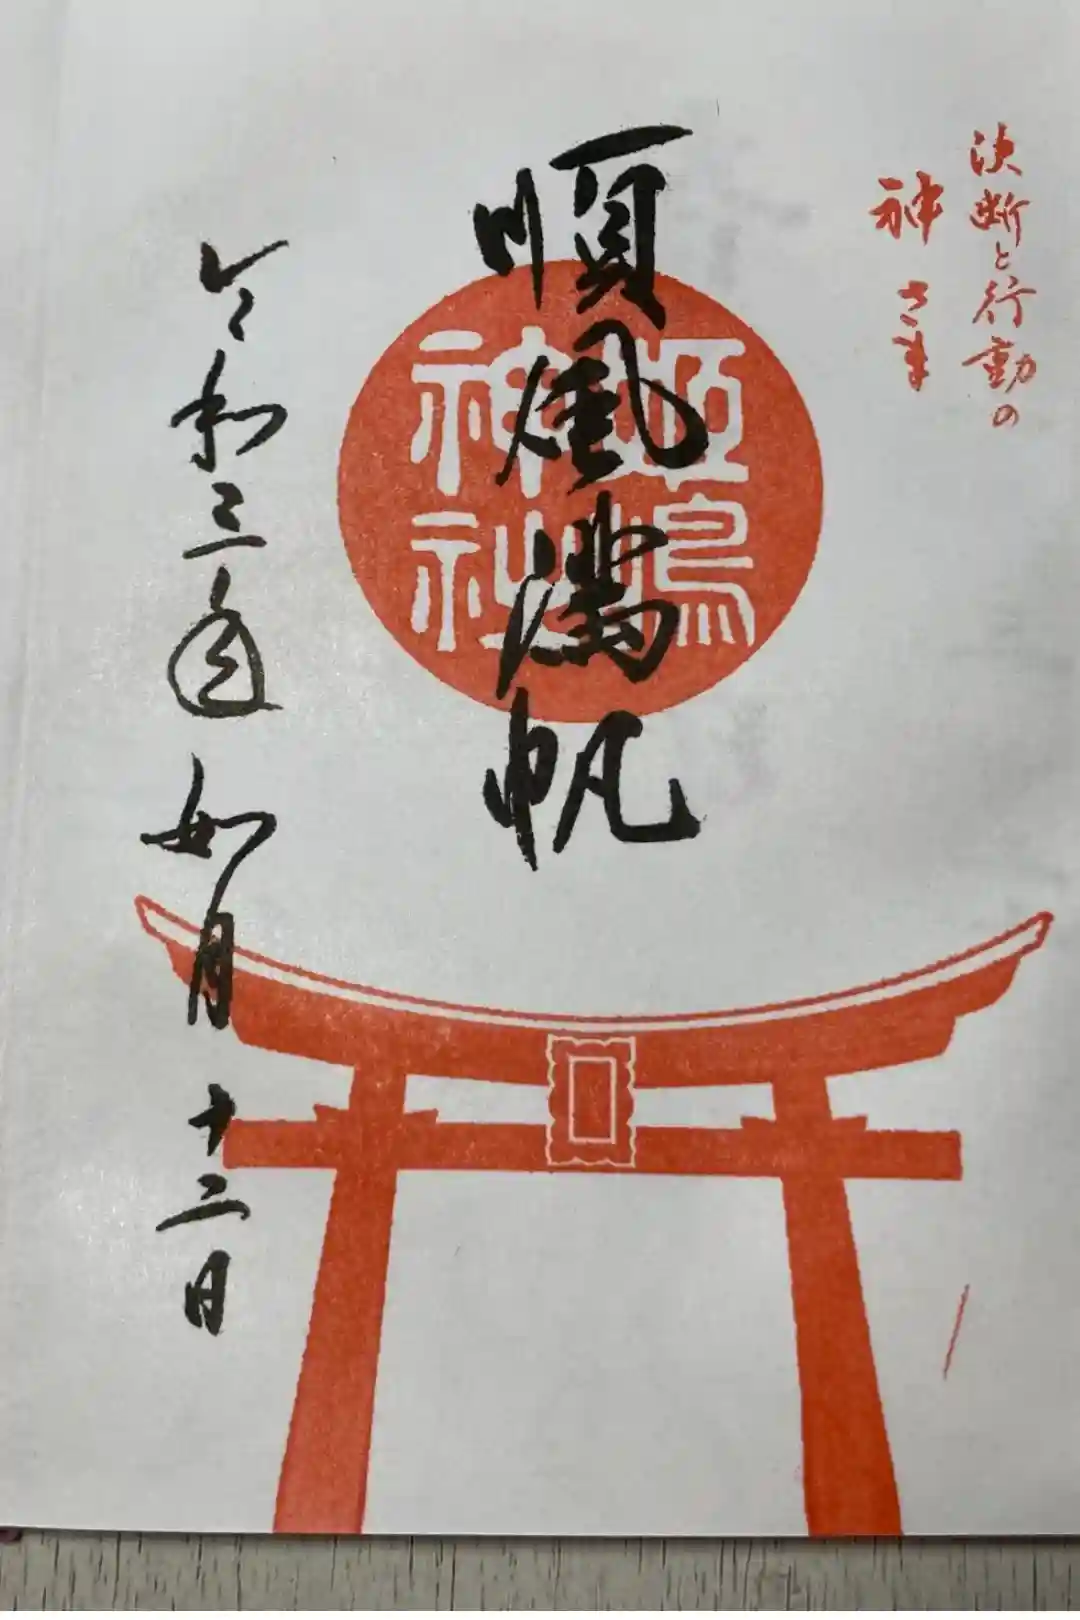 決断と行動の
神さま
順風満帆
姫嶋神社
令和三年 如月 十二日